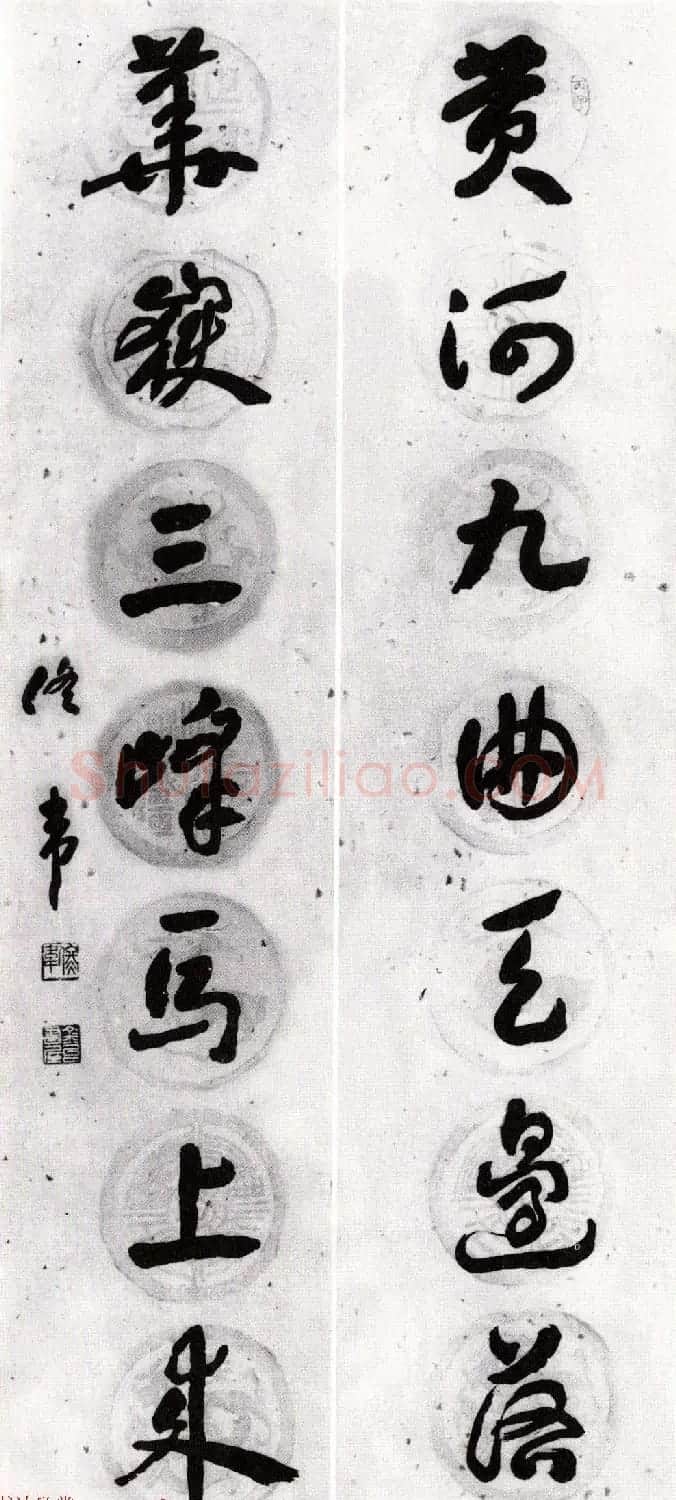 黄河九曲天邊落
華嶽三峰馬上来
佟韦
Shufaziliao.COM